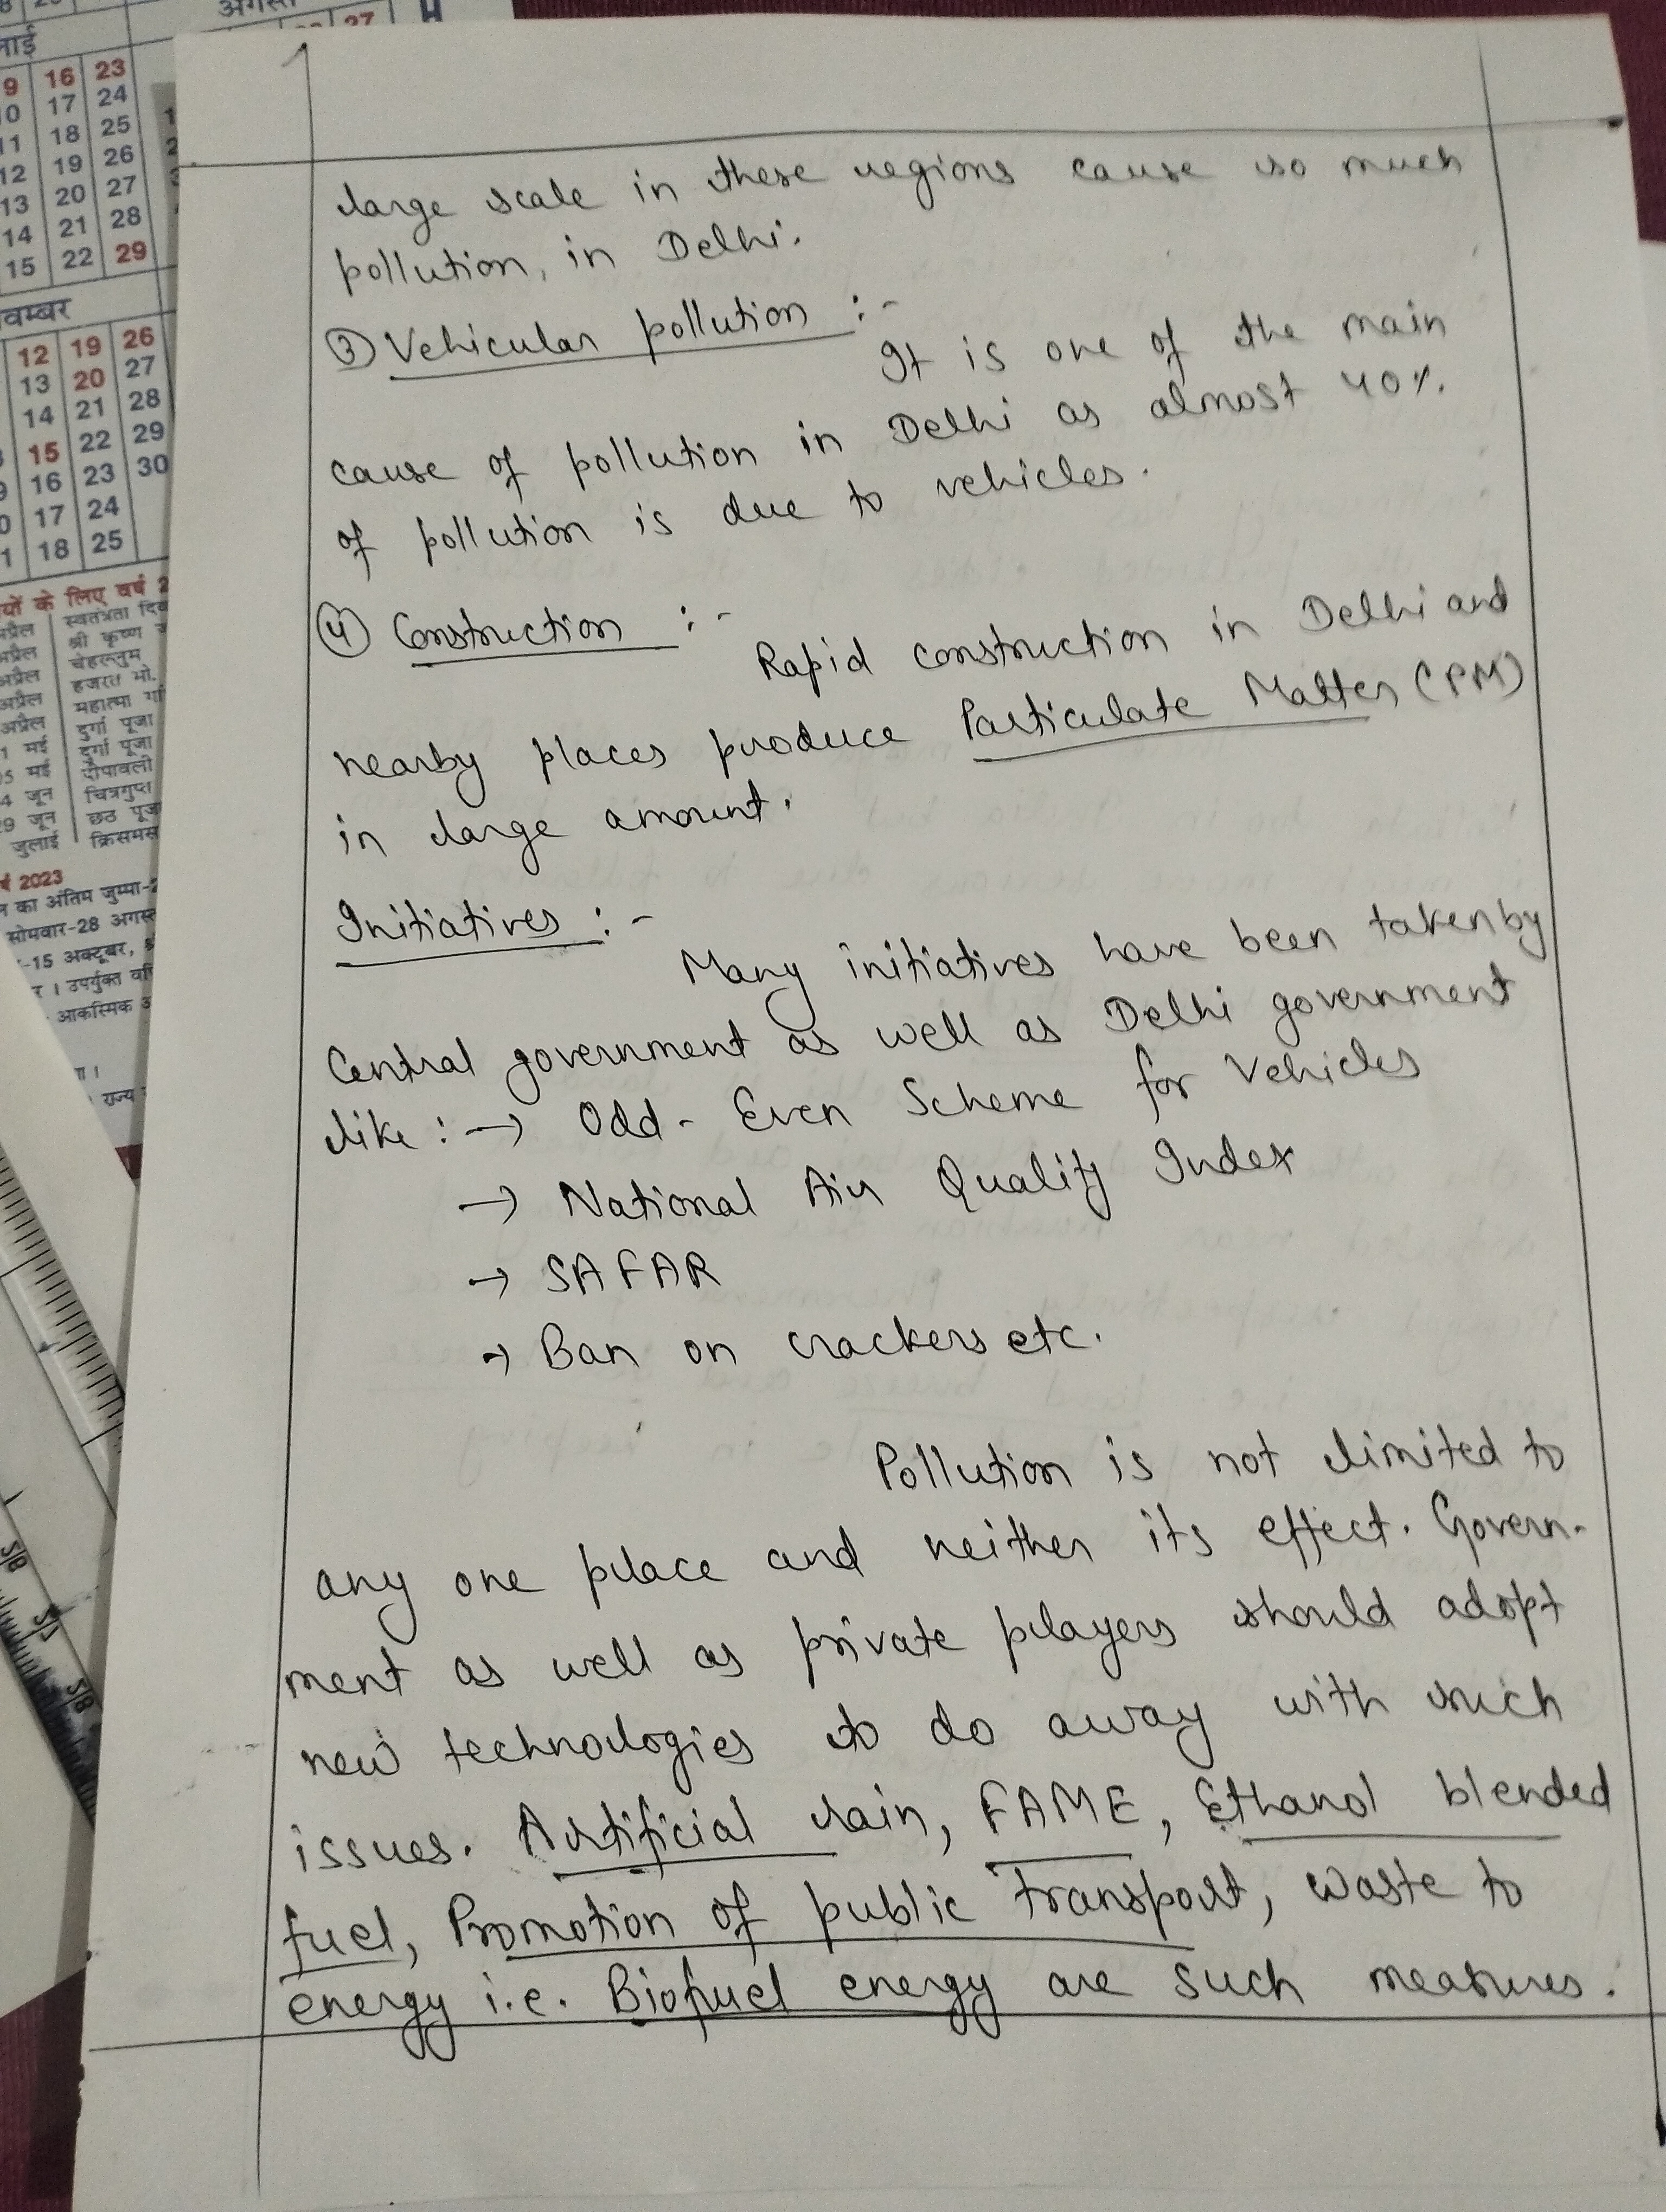 अगस्त
27
9 16 23
10 17 24
11 18 25
12 19 26
13 20 27
14 21 28
15 22 29
12 19 26
13 20 27
14 21 28
15 22 29
16 23 30
17 24
18 25
large scale in these regions cause so much
pollution, in Delhi.
③ Vehicular pollution :-
It is one of the main
cause of pollution in Delhi as almost 40%
of pollution is due to vehicles.
④ Construction :-
Rapid construction in Delhi and
nearby places produce Particulate Matter (PM)
in large amount.
Initiatives :-
Many initiatives have been taken by
Central government as well as Delhi government
like :→ Odd-Even Scheme for Vehicles
→ National Air Quality Index
→ SAFAR
→ Ban on crackers etc.
Pollution is not limited to
any one place and neither its effect. Govern-
ment as well as private players should adopt
new technologies to do away with such
issues. Artificial rain, FAME, Ethanol blended
fuel, Promotion of public transport, waste to
energy i.e. Biofuel energy are such measures.